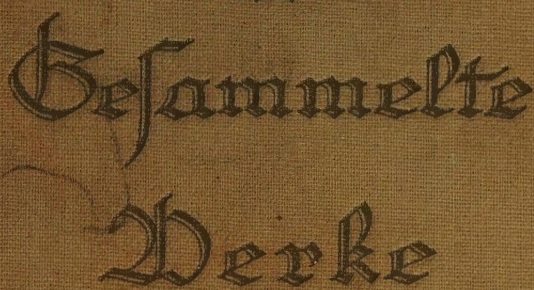 Gesammelte
Werke